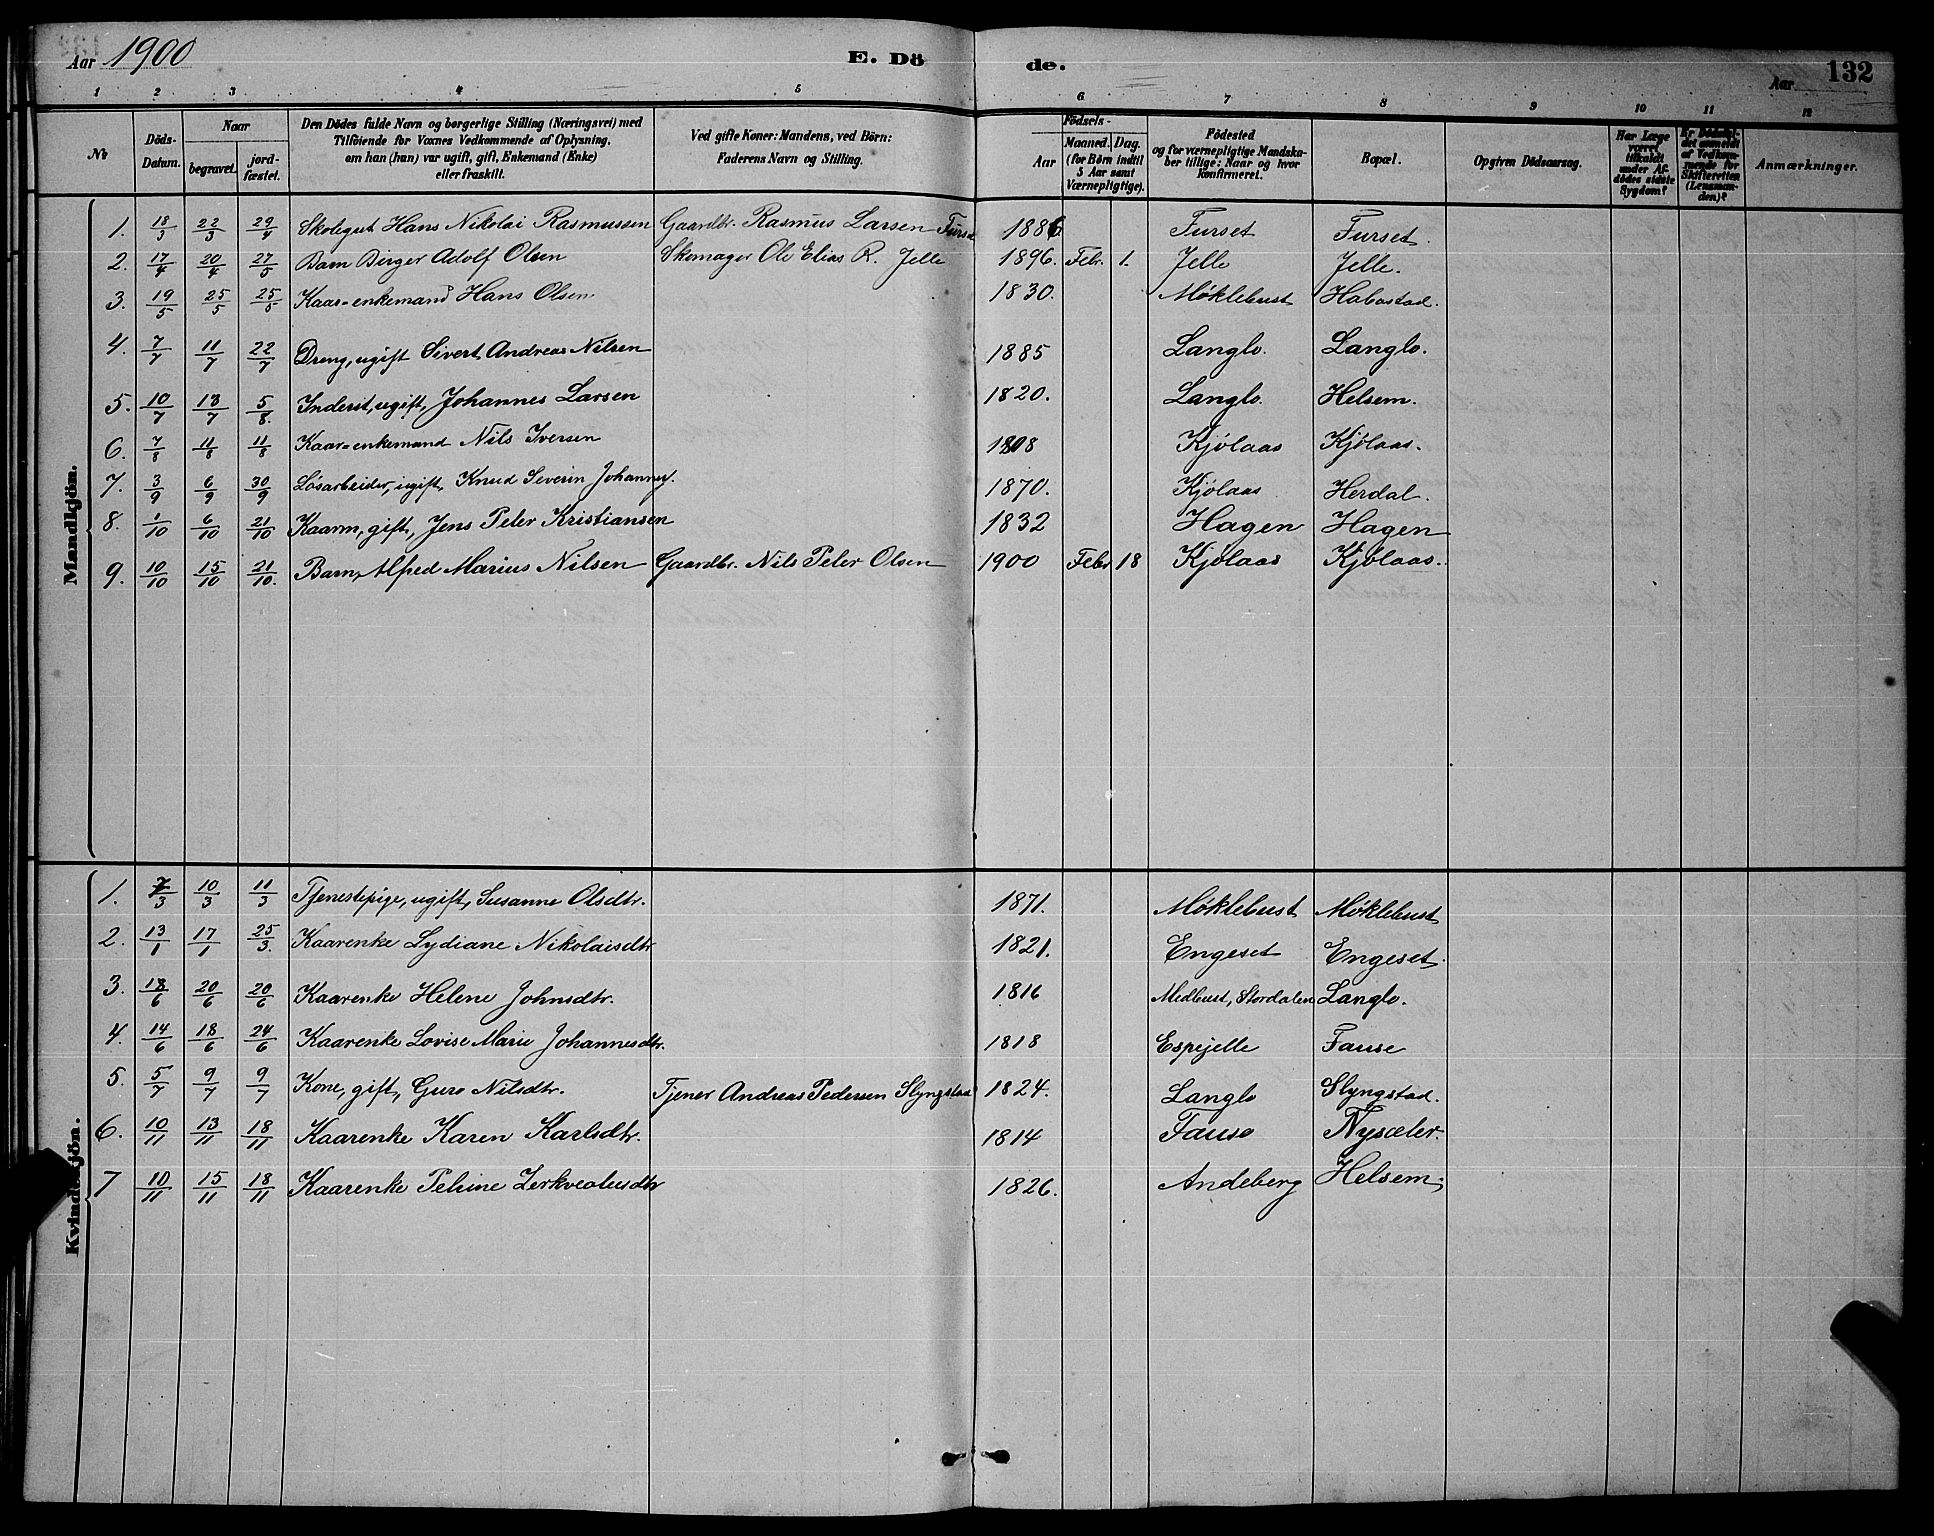 Aar 1900 E. Dö de. Aar 132
1 2 3 4 5 6 7 8 9 10 11 12
No Döds-Datum. Naar begravet. jordfæstet. Den Dödes fulde Navn og borgerlige Stilling (Næringsvei) med Tilföiende for Voxnes Vedkommende af Oplysning, om han (hun) var ugift, gift, Enkemand (Enke) eller fraskilt. Ved gifte Koner: Mandens, ved Börn: Faderens Navn og Stilling. Födsels- Aar Maaned. Dag. (for Börn indtil 5 Aar samt Værnepligtige). Födested og for værnepligtige Mandskaber tillige: Naar og hvor konfirmeret. Bopæl. Opgiven Dödsaarsag. Har Læge været tilkaldt under Afdödes sidste Sygdom? Er Dödsfaldet anmeldt af Vedkommende for Skifteretten (Lensmanden)? Anmærkninger.
Mandkjön.
1. 18/3 22/3 29/4 Skolegut Hans Nikolai Rasmussen Gaardbr. Rasmus Larsen Furset 1886 Furset Furset.
2. 17/4 20/4 27/5 Barn Birger Adolf Olsen Skomager Ole Elias R. Jelle 1896. Febr. 1. Jelle Jelle.
3. 19/5 25/5 25/5 Kaar-enkemand Hans Olsen 1830. Møklebust Habostad.
4. 7/7 11/7 22/7 Dreng, ugift Sivert Andreas Nilsen 1885 Langlo. Langlo.
5. 10/7 13/7 5/8. Inderst, ugift, Johannes Larsen 1820. Langlo. Helsem.
6. 7/8 11/8 11/8 Kaar-enkemand Nils Iversen 1808 Kjölaas Kjölaas.
7. 3/9 6/9 30/9 Lösarbeider, ugift, Knud Severin Johannes. 1870. Kjölaas Herdal.
8. 1/10 6/10 21/10 Kaarm, gift, Jens Peter Kristiansen 1832 Hagen Hagen
9. 10/10 15/10 21/10. Barn, Alfred Marius Nilsen Gaardbr. Nils Peter Olsen 1900 Febr 18 Kjölaas Kjölaas.
Kvindekjön.
1. 7/3 10/3 11/3 Tjenestepige, ugift, Susanne Olsdtr. 1871. Møklebust Møklebust
2. 13/1 17/1 25/3. Kaarenke Lydiane Nikolaisdtr 1821. Engeset Engeset.
3. 18/6 20/6 20/6 Kaarenke Helene Johnsdtr. 1816 Medbust, Stordalen Langlo.
4. 14/6 18/6 24/6 Kaarenke Lovise Marie Johannesdtr. 1818 Espejelle Fause
5. 5/7 9/7 9/7 Kone, gift, Guro Nilsdtr. Tjener Andreas Pedersen Slyngstad 1824. Langlo Slyngstad.
6. 10/11 13/11 18/11 Kaarenke Karen Karlsdtr. 1814 Fause Nysæter.
7 10/11 15/11 18/11 Kaarenke Petrine 1826. Andeberg Helsem.